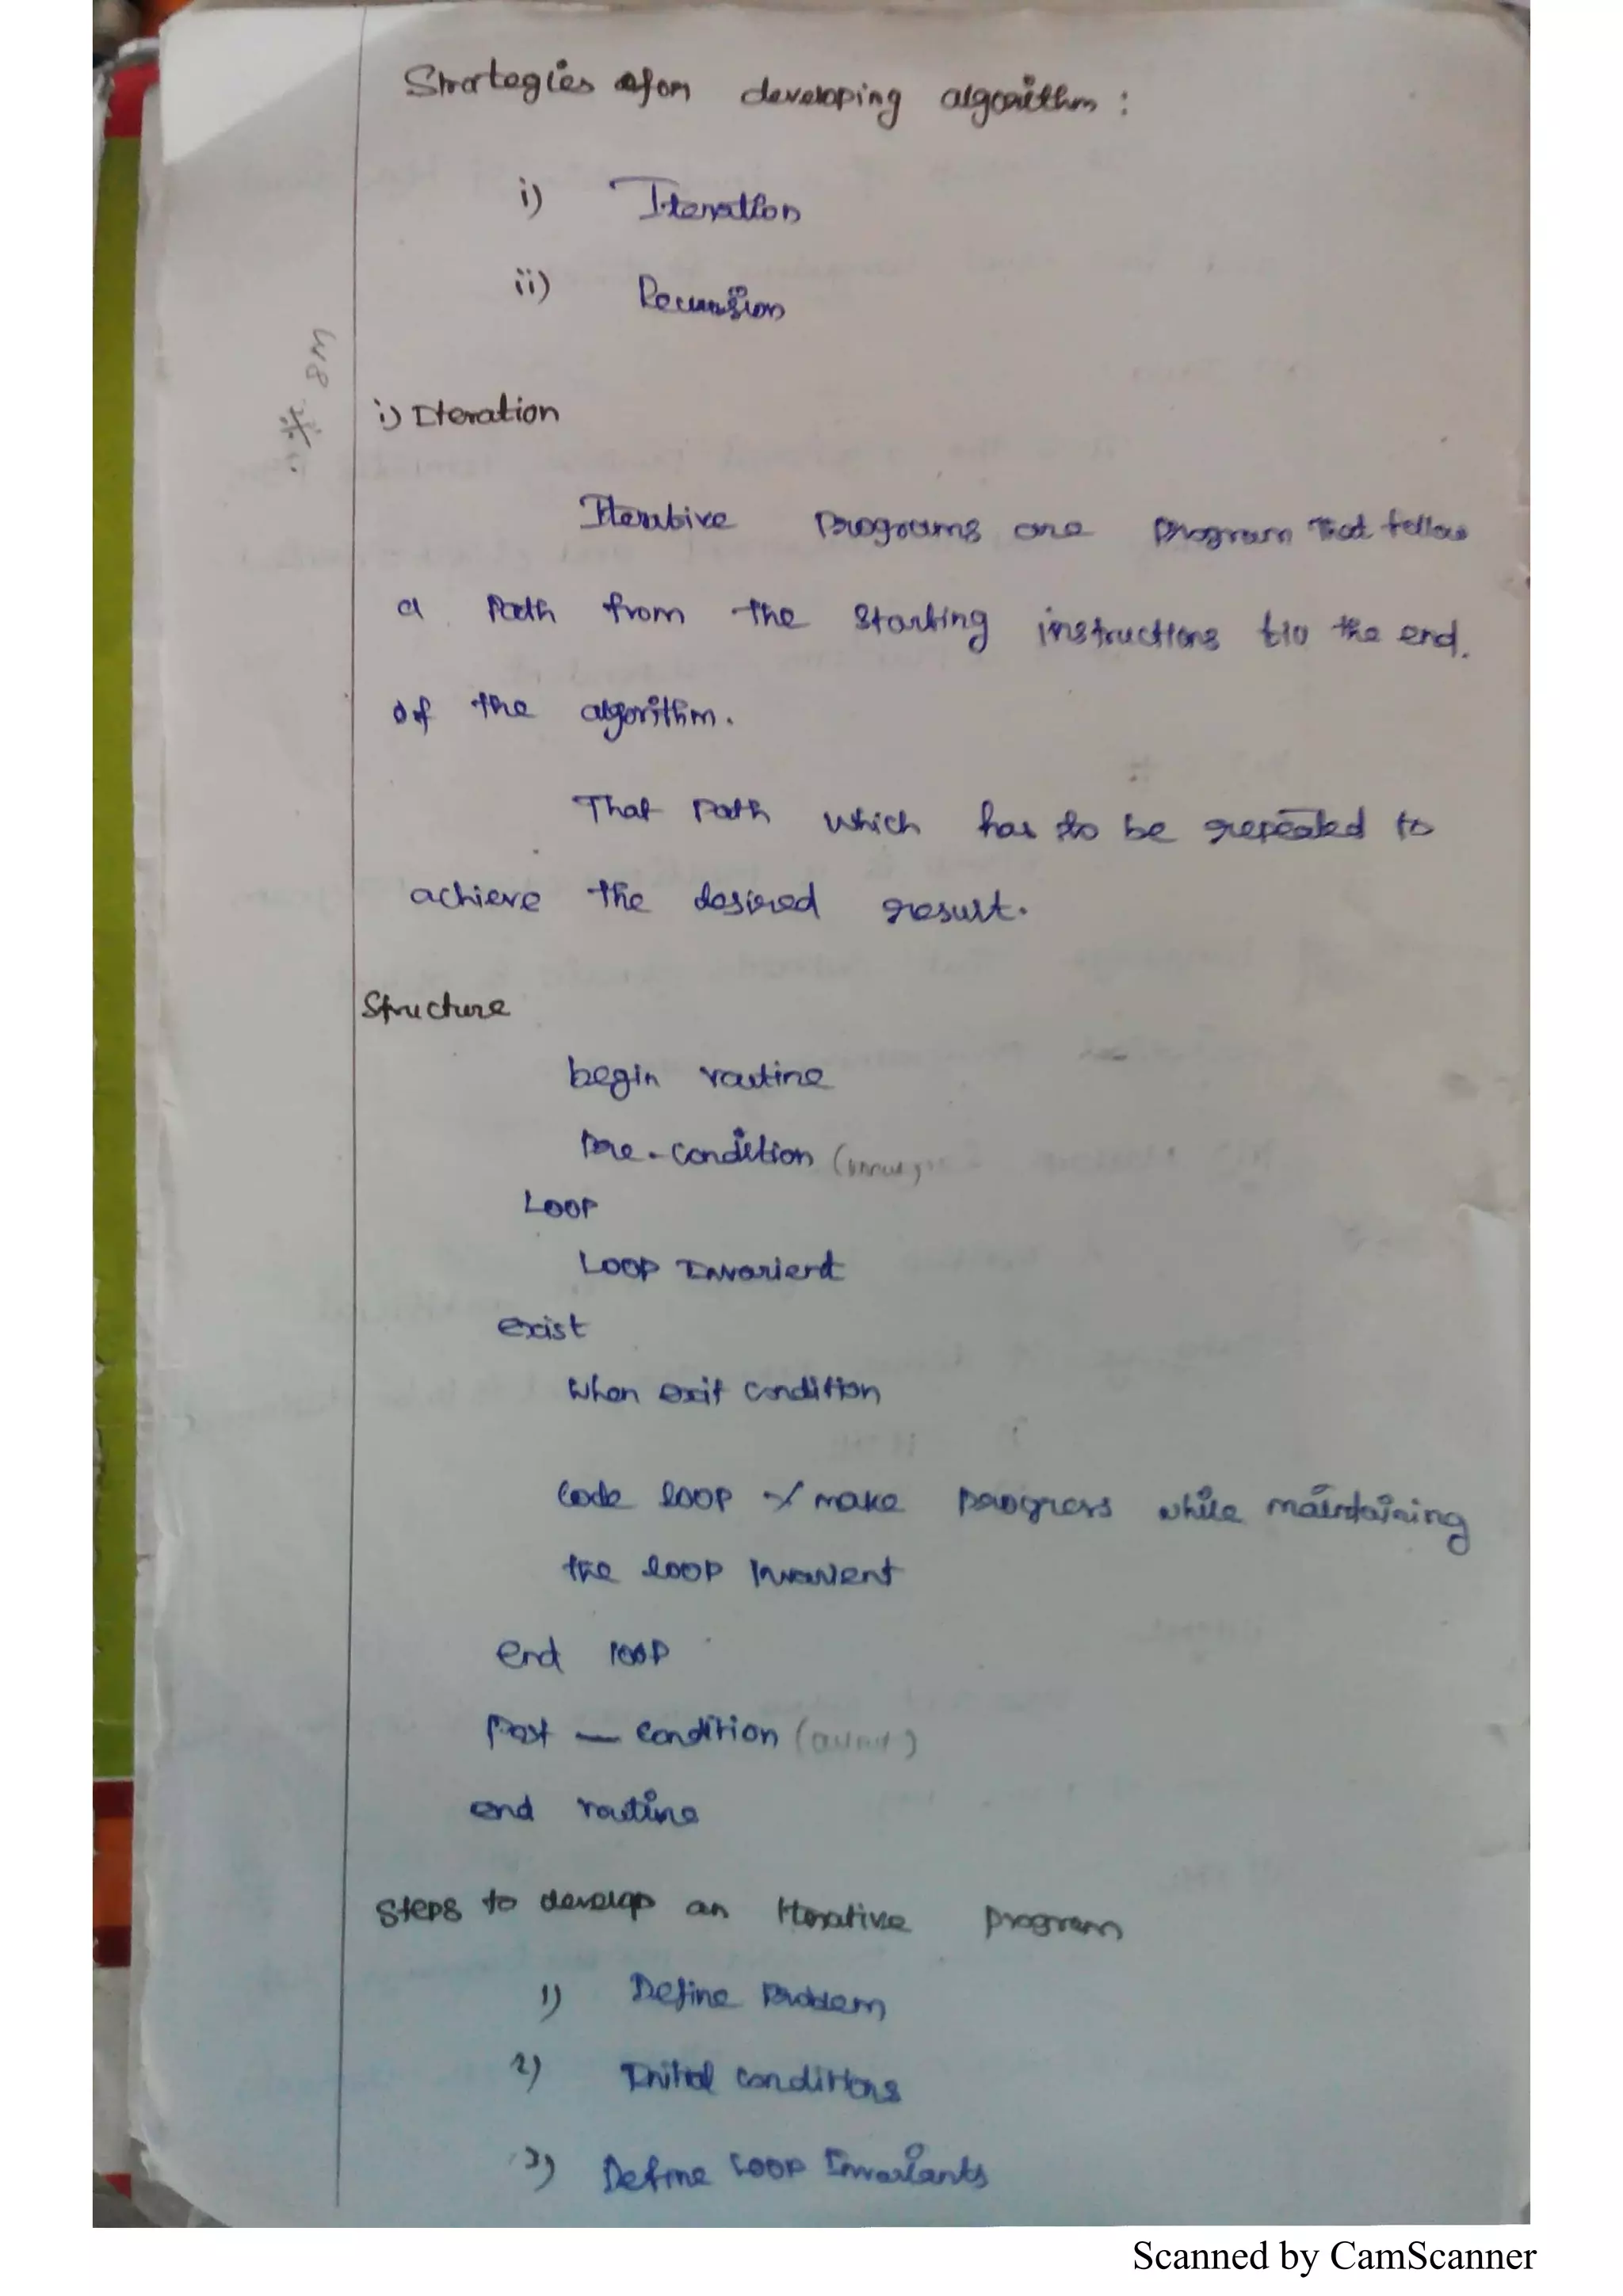 Strategies for developing algorithm :
i) Iteration
ii) Recursion
8M
i) Iteration
Iterative programs are program that follow
a path from the starting instructions till the end.
of the algorithm.
That path which has to be repeated to
achieve the desired result.
Structure
begin routine
Pre - condition
Loop
Loop Invarient
exist
When exit condition
Code loop make progress while maintaining
the loop Invarient
end loop
Post - condition
end routine
Steps to develop an Iterative program
1) Define Problem
2) Initial conditions
3) Define Loop Invariants
Scanned by CamScanner